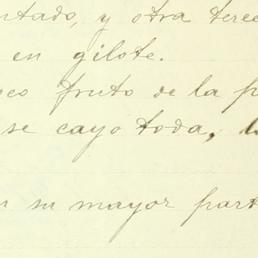 ntado, y otra terce
en gilote.
oco fruto de la p
se cayo toda,
n su mayor part